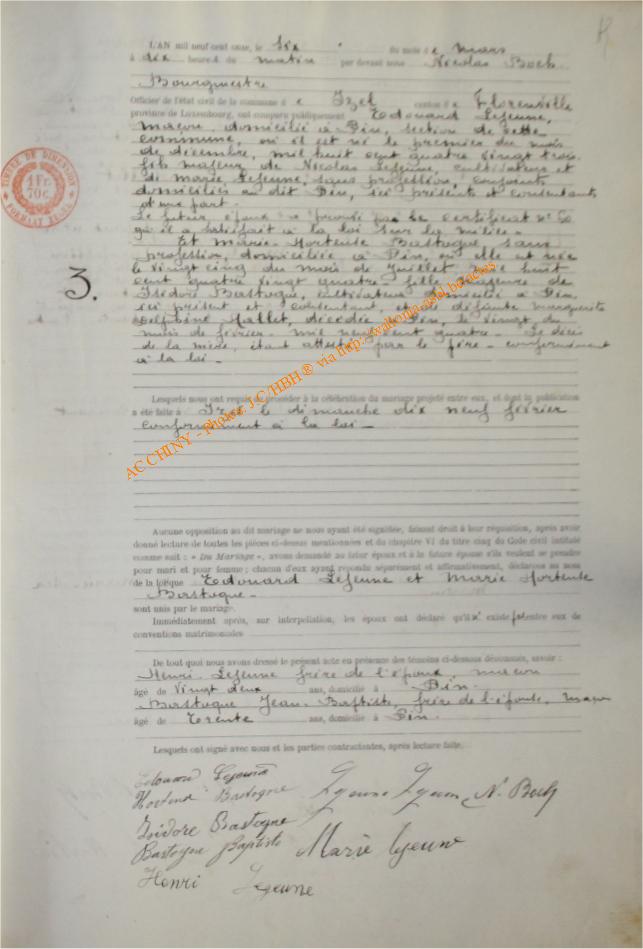 L'AN mil neuf cent onze, le six du mois de mars
à dix heures du matin par devant nous Nicolas Boch
Bourgmestre
Officier de l'état civil de la commune de Izel canton de Florenville
province de Luxembourg, ont comparu publiquement Edouard Lejeune,
maçon, domicilié à Pin, section de cette
commune, où il est né le premier du mois
de décembre, mil huit cent quatre vingt trois
fils majeur, de Nicolas Lejeune, cultivateur et
de Marie Lejeune, sans profession, conjoints
domiciliés au dit Pin, ici présents et consentants
d'une part.
Le futur, époux a prouvé par le certificat n°
qu'il a satisfait à la loi sur la milice.
Et Marie-Hortense Bastogne, sans
profession, domiciliée à Pin, où elle est née
le vingt cinq du mois de Juillet mil huit
cent quatre vingt quatre, fille majeure de
Isidore Bastogne, cultivateur, domicilié à Pin,
ici présent et consentant, et de défunte Marguerite
Delphine Hallet, décédée à Pin, le vingt du
mois de février, mil neuf cent quatre. Le décès
de la mère, étant attesté par le père conformément
à la loi.
3.
TIMBRE DE DIMENSION
1 Fr. 70 c.
FORMAAT ZEGEL
Lesquels nous ont requis de procéder à la célébration du mariage projeté entre eux, et dont la publication
a été faite à Izel le dimanche dix neuf février
conformément à la loi
Aucune opposition au dit mariage ne nous ayant été signifiée, faisant droit à leur réquisition, après avoir
donné lecture de toutes les pièces ci-dessus mentionnées et du chapitre VI du titre cinq du Code civil intitulé
comme suit : « Du Mariage », avons demandé au futur époux et à la future épouse s'ils veulent se prendre
pour mari et pour femme ; chacun d'eux ayant répondu séparément et affirmativement, déclarons au nom
de la loi que Edouard Lejeune et Marie Hortense
Bastogne
sont unis par le mariage.
Immédiatement après, sur interpellation, les époux ont déclaré qu'il n'existe pas entre eux de
conventions matrimoniales
De tout quoi nous avons dressé le présent acte en présence des témoins ci-dessous dénommés, savoir :
Henri Lejeune frère de l'époux, maçon
âgé de vingt deux ans, domicilié à Pin
Bastogne Jean Baptiste frère de l'épouse, maçon
âgé de Trente ans, domicilié à Pin.
Lesquels ont signé avec nous et les parties contractantes, après lecture faite.
Edouard Lejeune
Hortense Bastogne Lejeune N. Boch
Isidore Bastogne
Bastogne Baptiste Marie Lejeune
Henri Lejeune
ACCHINY - Photos J.C/HBH ® via http://wallonia-asbl.be/actes